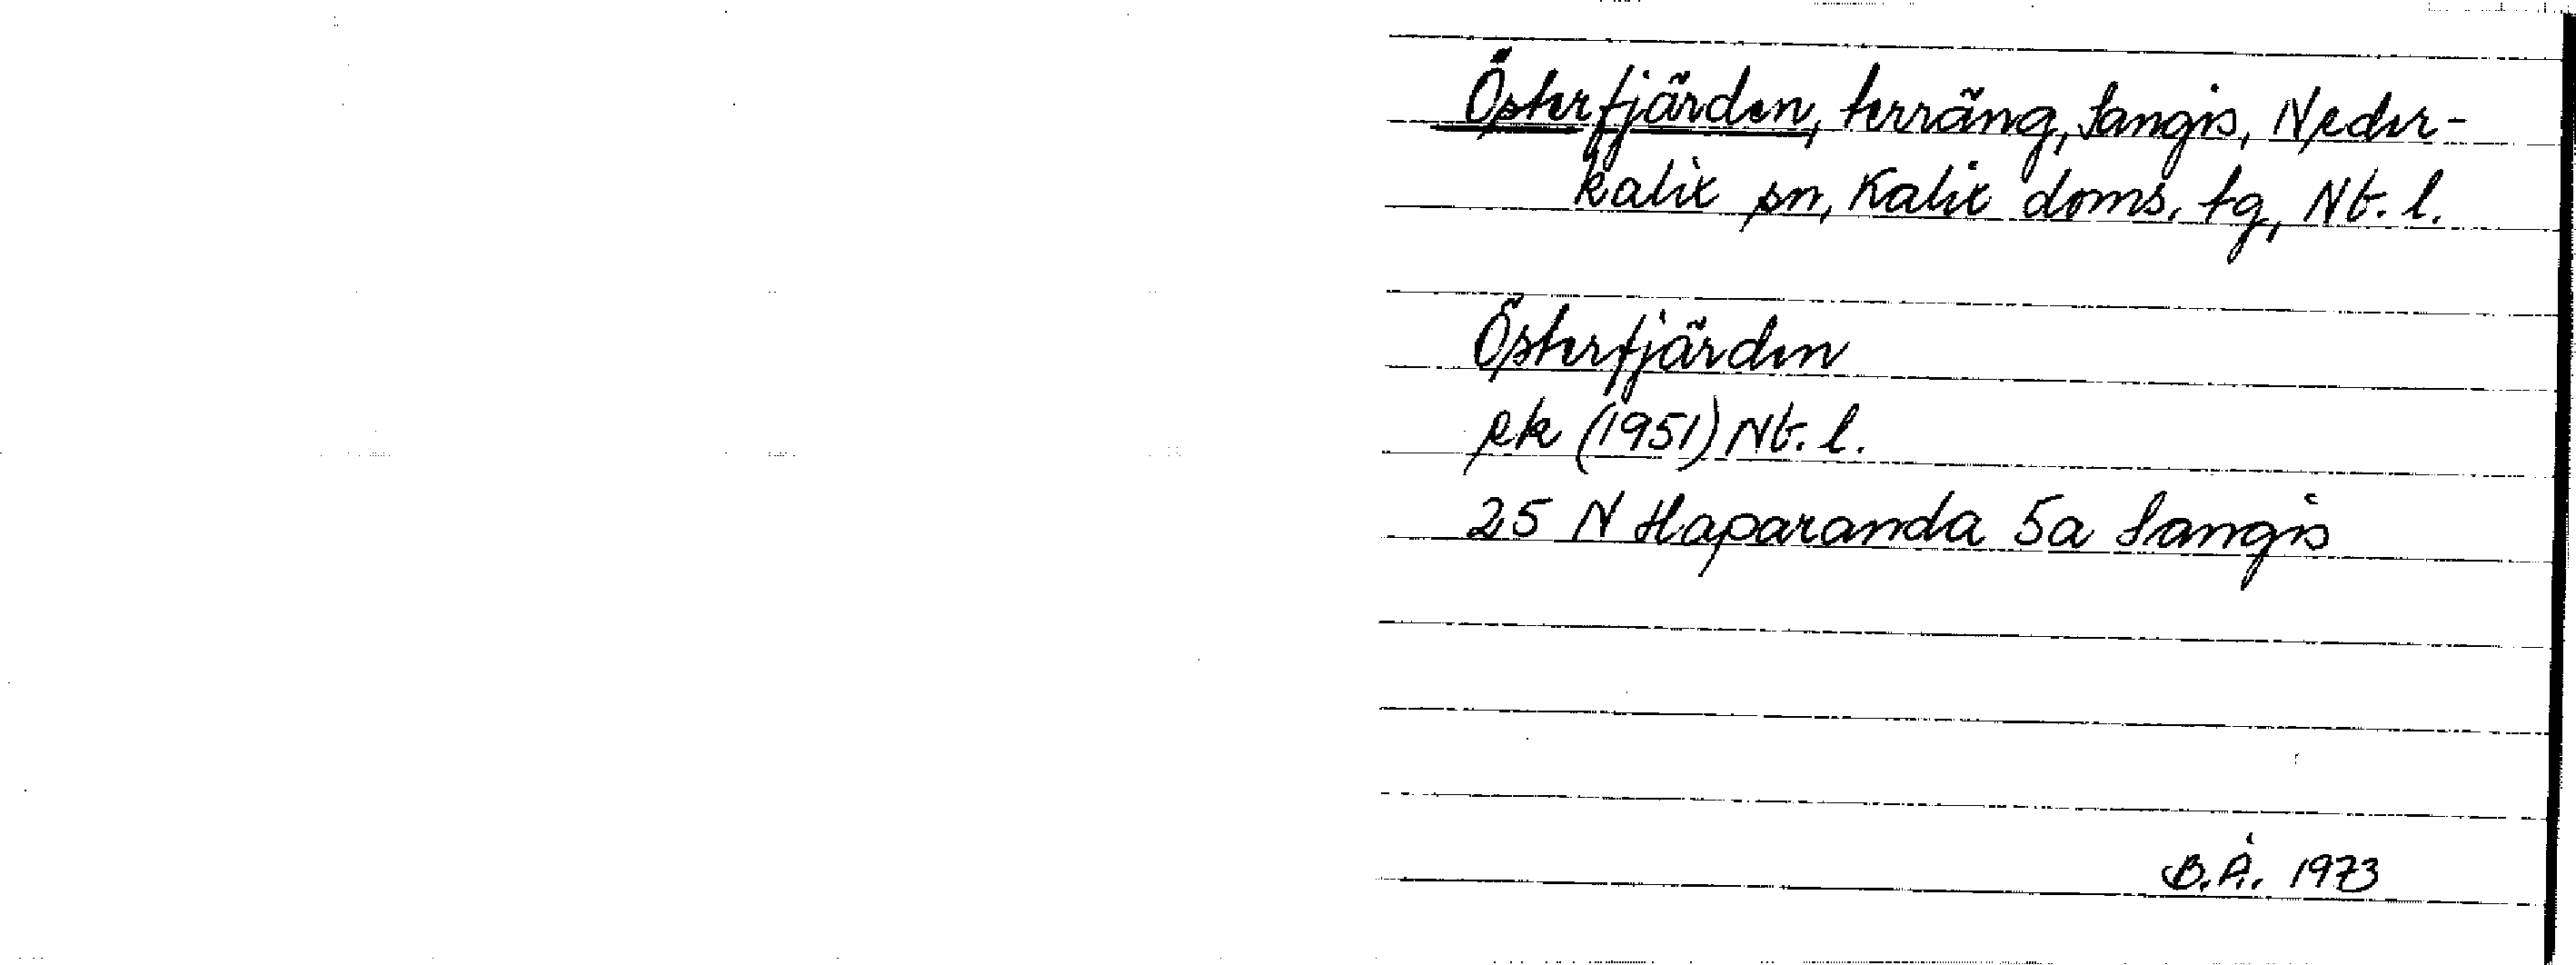 Österfjärden, terräng, Sangis, Neder-
kalix sn, Kalix doms. tg, Nb. l.
Österfjärden
ek (1951) Nb. l.
25 N Haparanda 5a Sangis
B.Å. 1973